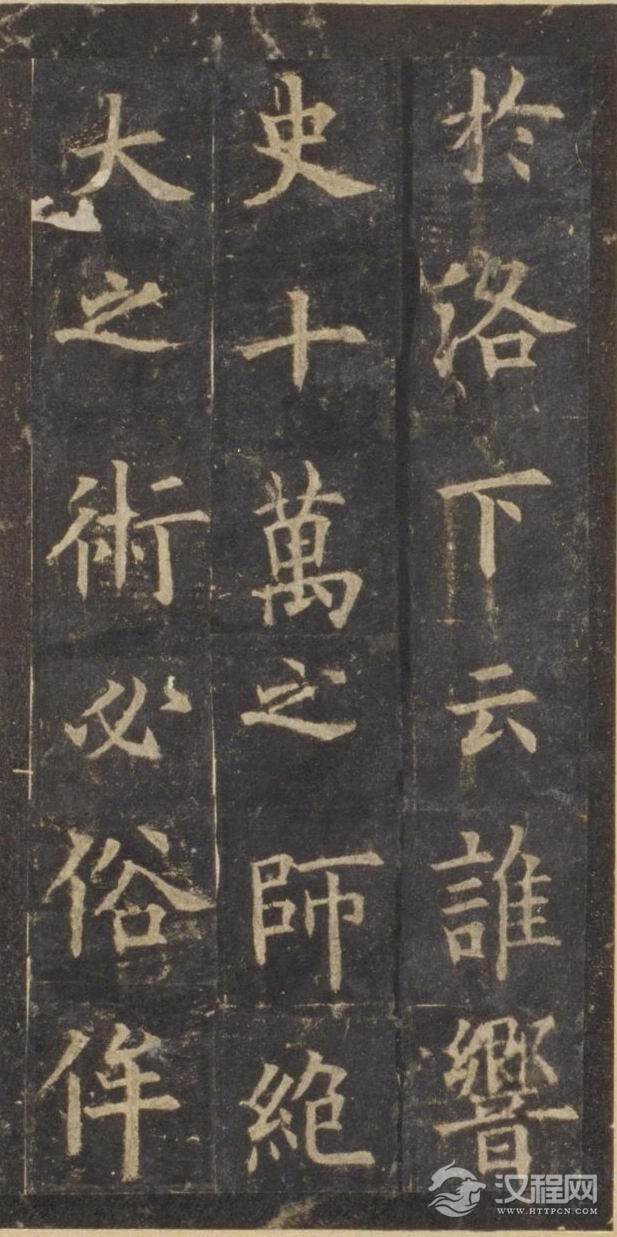 於洛下云誰響
史十萬之師絶
大之術必俗侔
汉程网
WWW.HTTPCN.COM